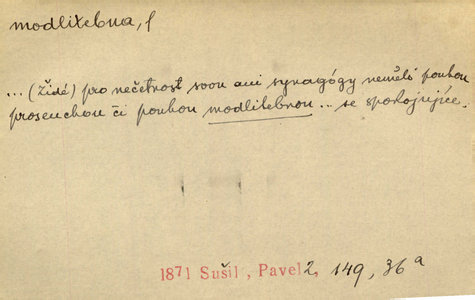 modlitebna, f
... (Židé) pro nečetnost svou ani synagógy neměli pouhou
proseuchou či pouhou modlitebnou ... se spokojujíce.
1871 Sušil, Pavel 2, 149, 36a